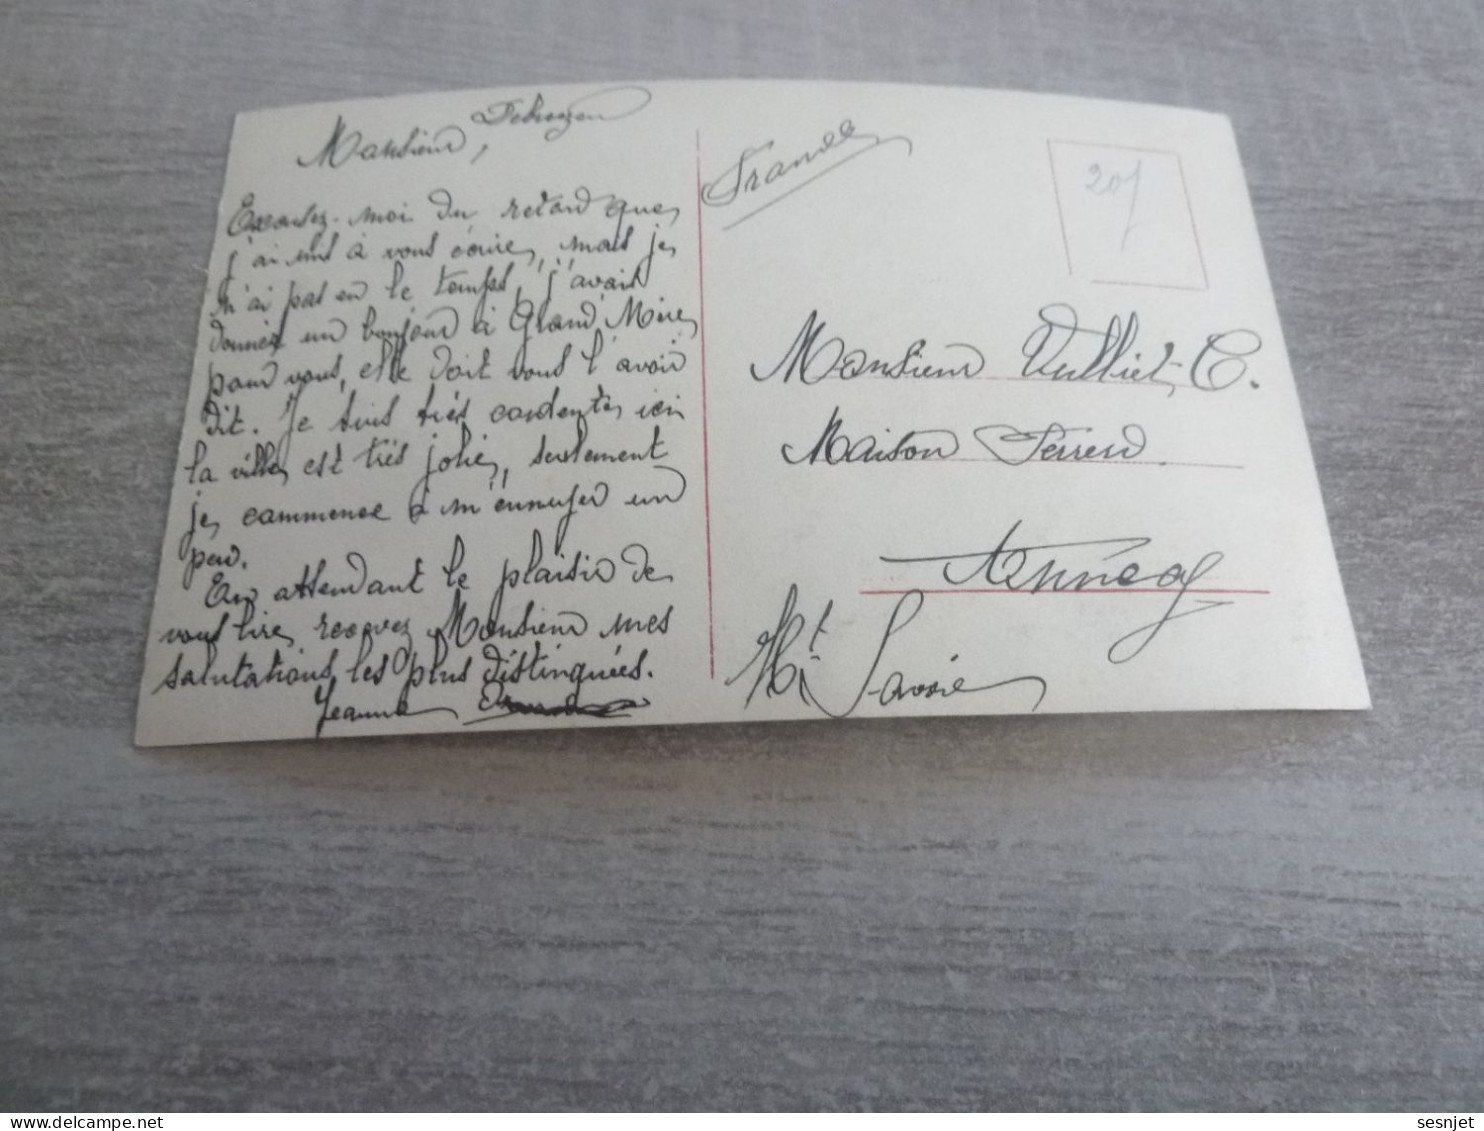 Monsieur,
Excusez-moi du retard que
j'ai mis à vous écrire, mais je
n'ai pas eu le temps, j'avais
donnéz un bonjour à Grand'Mère
pour vous, elle doit vous l'avoir
dit. Je suis très contente ici
la ville est très jolie, seulement
je commence à m'ennuyer un
peu.
En attendant le plaisir de
vous lire recevez Monsieur mes
salutations les plus distinguées.
Jeanne
France
20f
Monsieur Vulliet C.
Maison Ferrero
Annecy
Hte Savoie
sesnjet